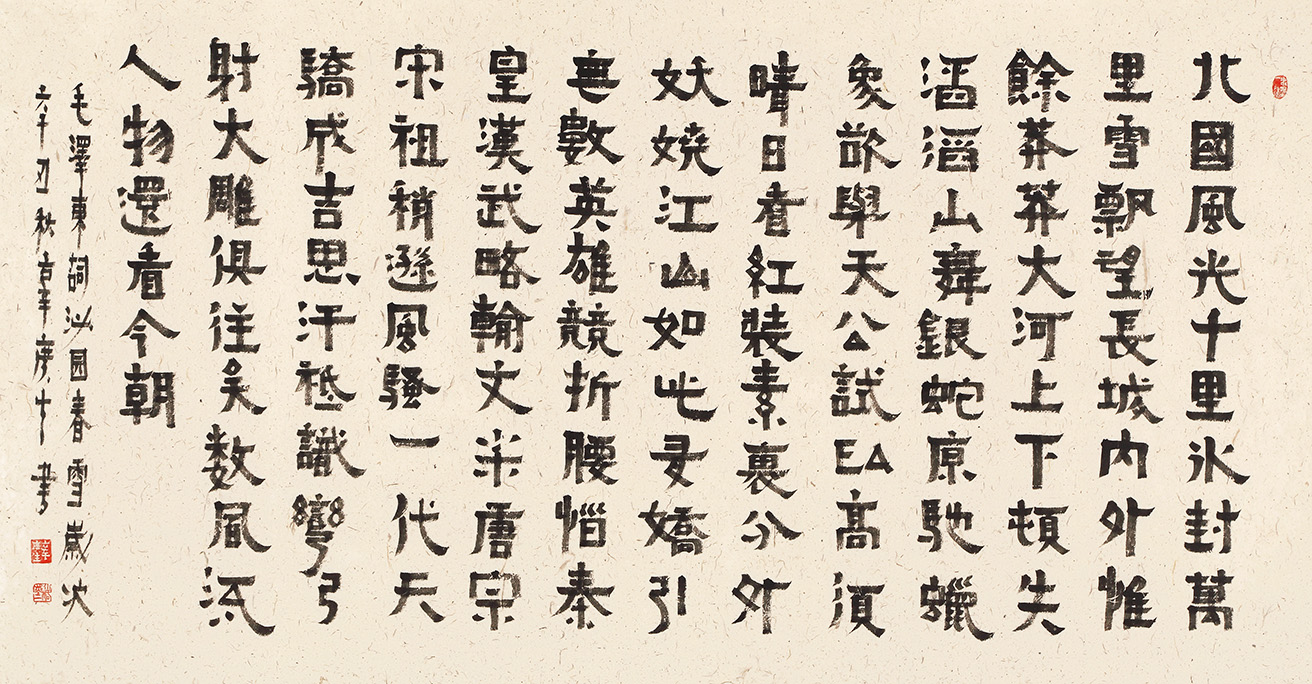 北國風光千里氷封萬
里雪飄望長城内外惟
餘莽莽大河上下頓失
滔滔山舞銀蛇原馳蠟
象欲與天公試比高須
晴日看紅裝素裹分外
妖嬈江山如此多嬌引
無數英雄競折腰惜秦
皇漢武略輸文采唐宗
宋祖稍遜風騷一代天
驕成吉思汗祗識彎弓
射大雕俱往矣数風流
人物還看今朝
毛澤東詞沁园春雪歲次
辛丑秋書